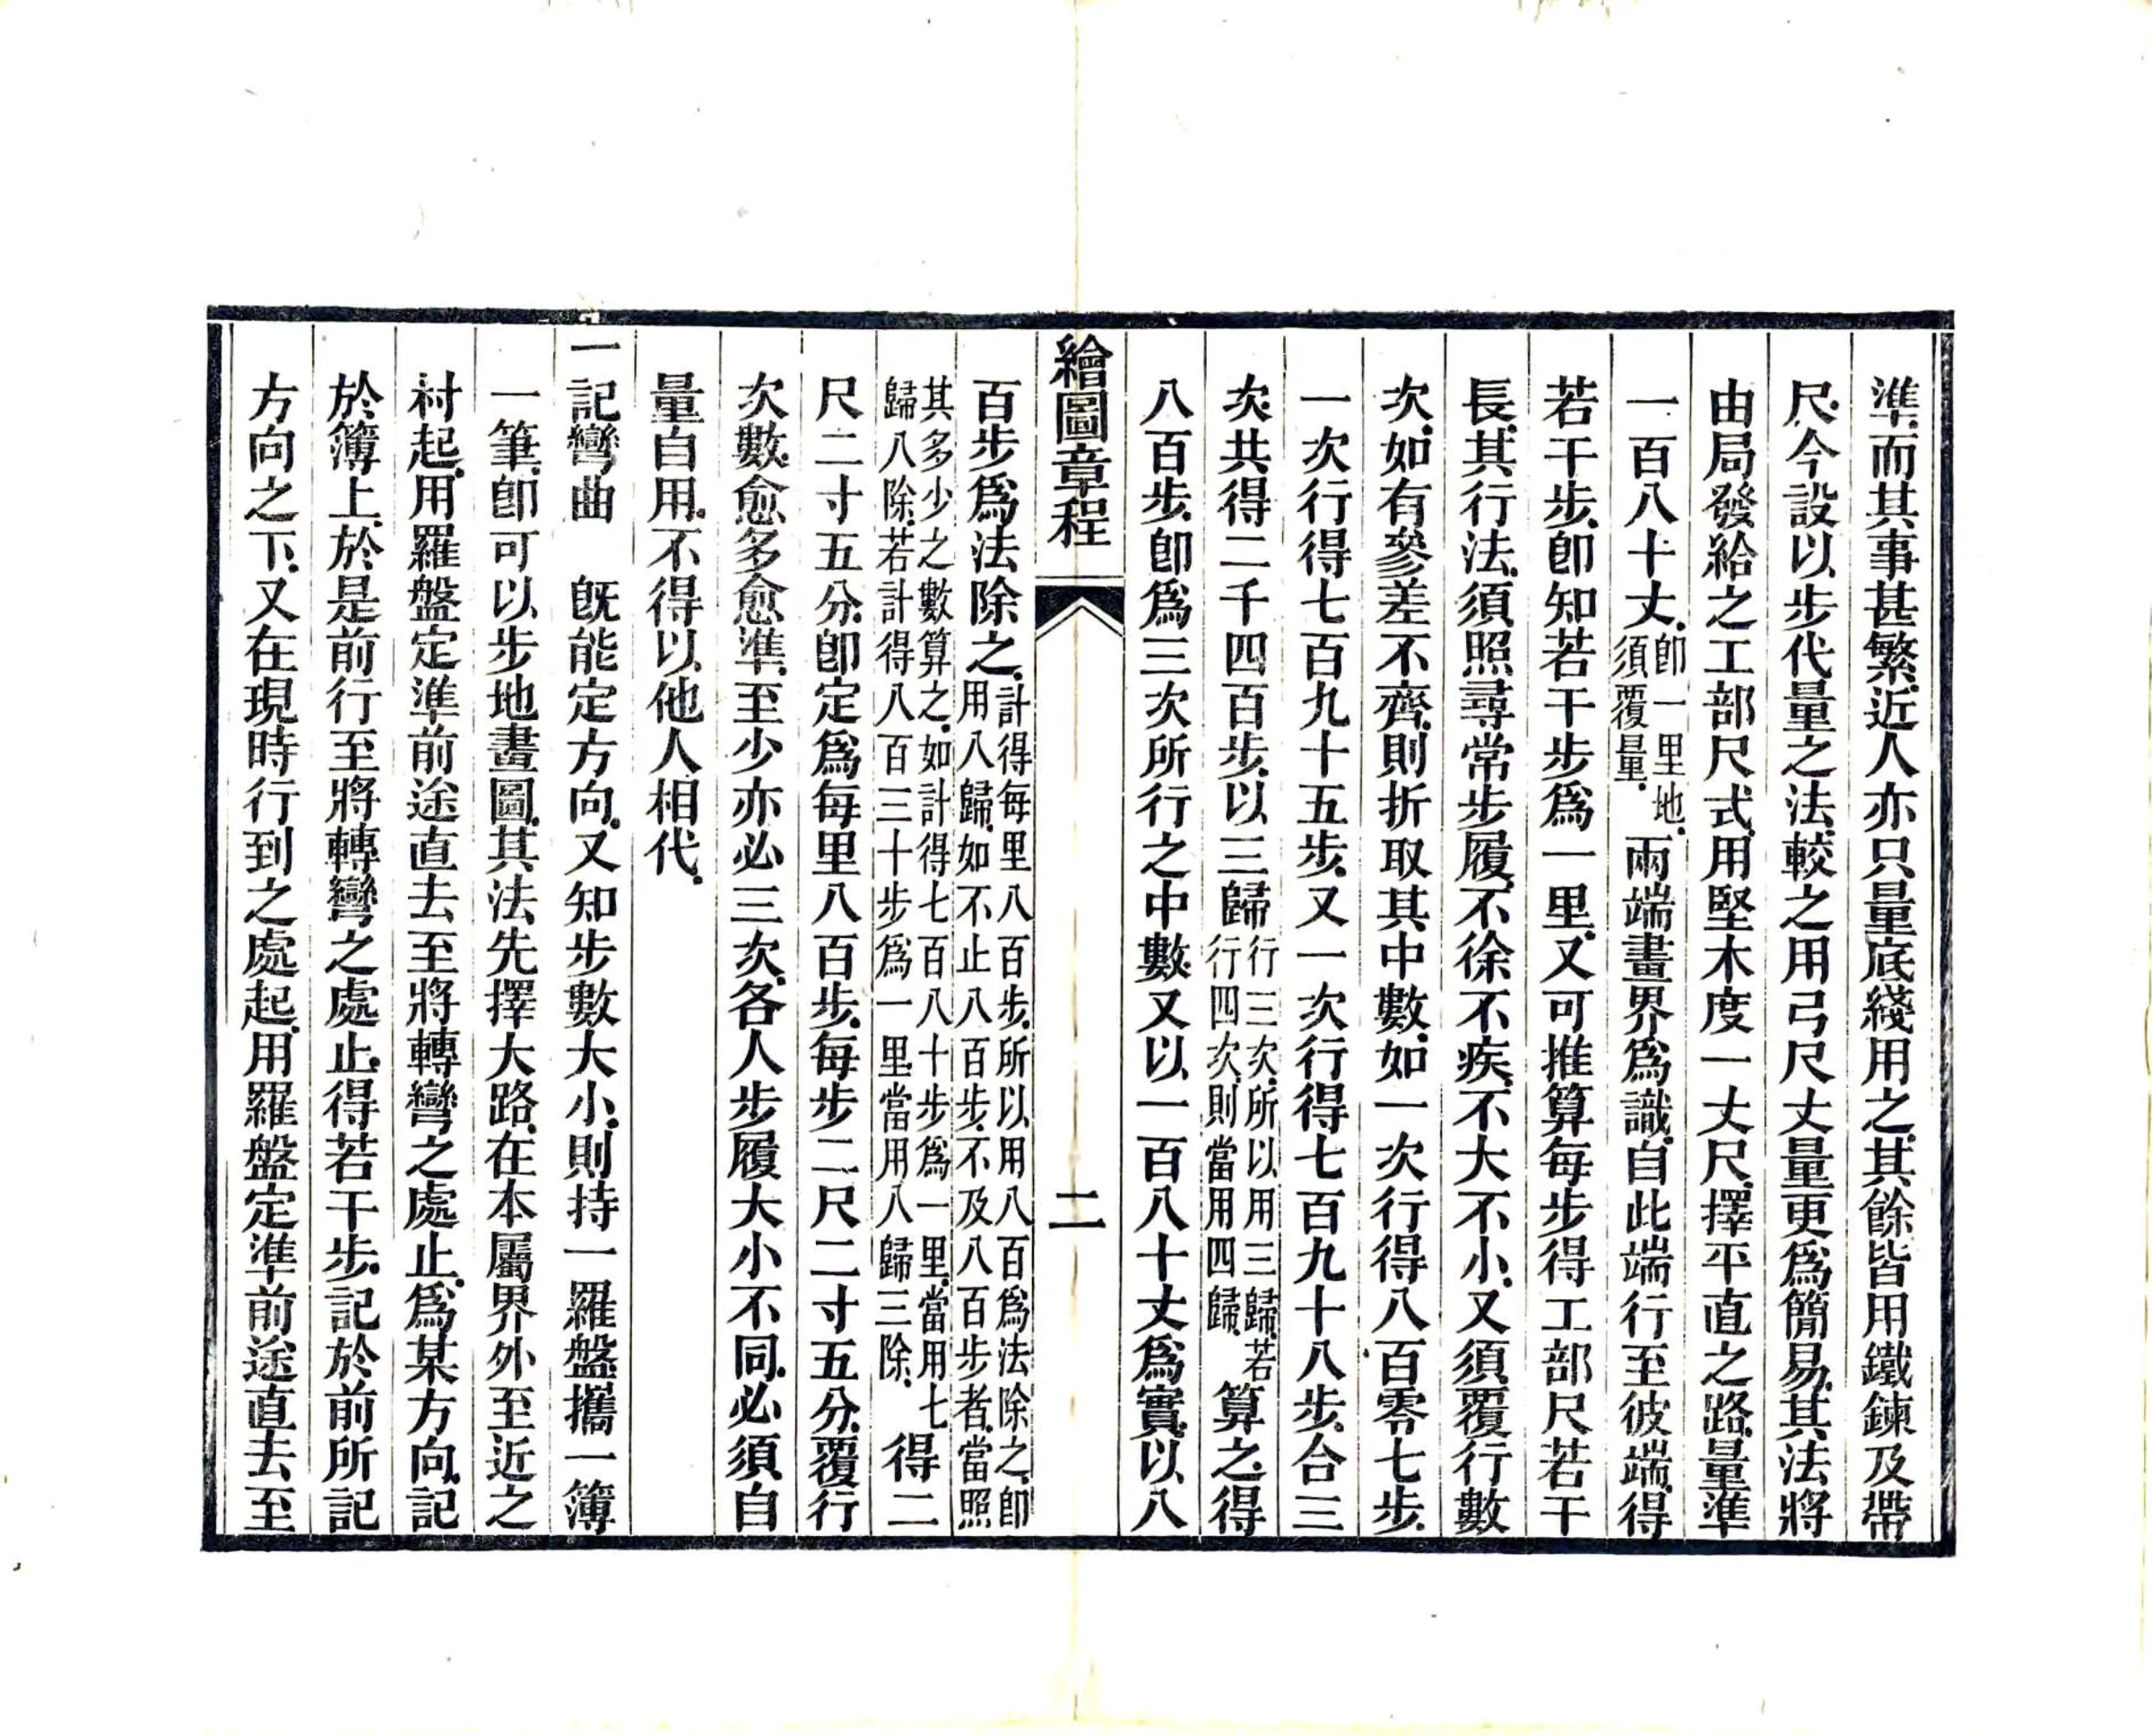 準而其事甚繁近人亦只量底綫用之其餘皆用鐵鍊及帶
尺今設以步代量之法較之用弓尺丈量更爲簡易其法將
由局發給之工部尺式用堅木度一丈尺擇平直之路量準
一百八十丈卽一里地須覆量兩端畫界爲識自此端行至彼端得
若干步卽知若干步爲一里又可推算每步得工部尺若干
長其行法須照尋常步履不徐不疾不大不小又須覆行數
次如有參差不齊則折取其中數如一次行得八百零七步
一次行得七百九十五步又一次行得七百九十八步合三
次共得二千四百步以三歸行三次所以用三歸若行四次則當用四歸算之得
八百步卽爲三次所行之中數又以一百八十丈爲實以八
繪圖章程 二
百步爲法除之計得每里八百步所以用八百爲法除之卽用八歸如不止八百步不及八百步者當照
其多少之數算之如計得七百八十步爲一里當用七歸八除若計得八百三十步爲一里當用八歸三除得二
尺二寸五分卽定爲每里八百步每步二尺二寸五分覆行
次數愈多愈準至少亦必三次各人步履大小不同必須自
量自用不得以他人相代
一記彎曲 既能定方向又知步數大小則持一羅盤攜一簿
一筆卽可以步地畫圖其法先擇大路在本屬界外至近之
村起用羅盤定準前途直去至將轉彎之處止爲某方向記
於簿上於是前行至將轉彎之處止得若干步記於前所記
方向之下又在現時行到之處起用羅盤定準前途直去至